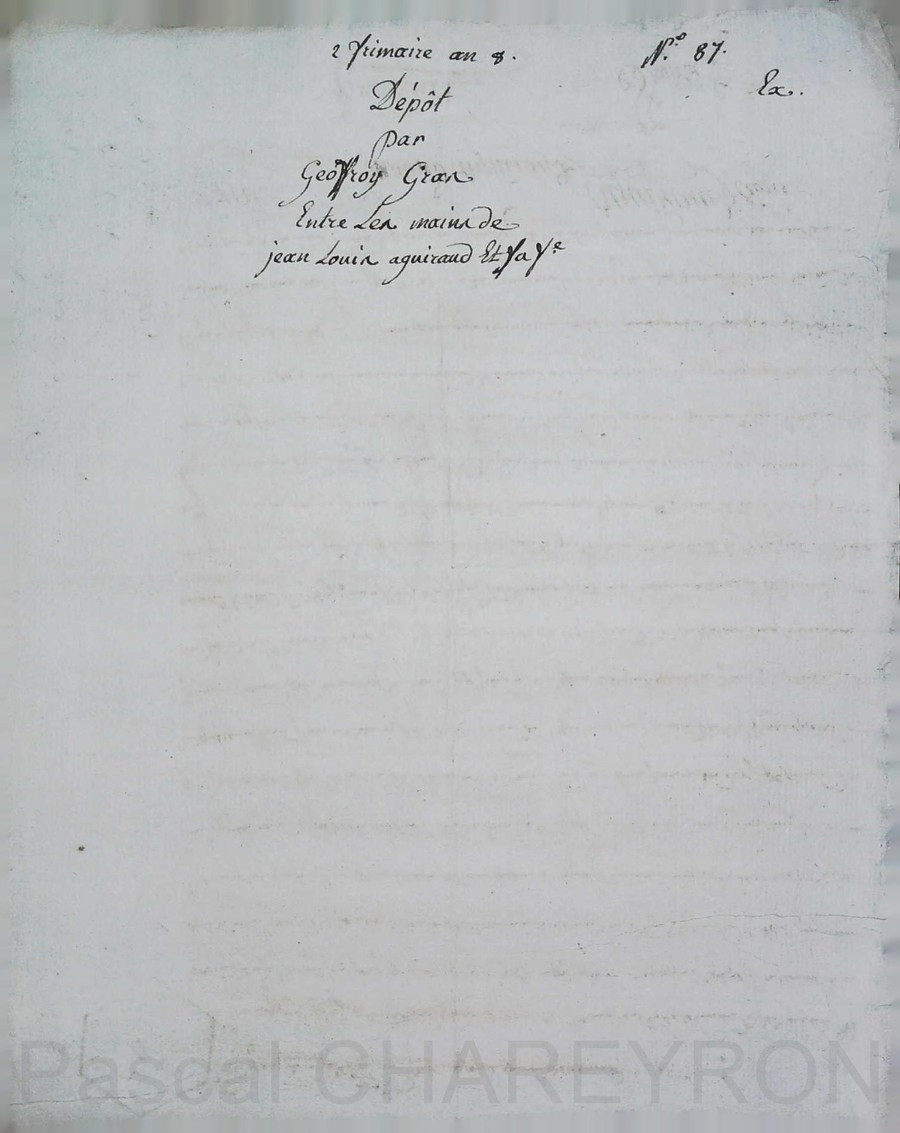 2 frimaire an 8. N.º 87.
Ex.
Dépôt
par
Geoffroy Gras
Entre Les mains de
jean Louis aguiraud Et fa fe
Pascal CHAREYRON